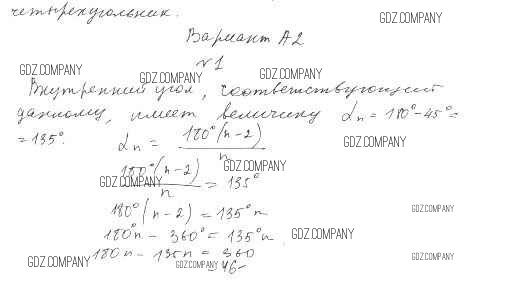 четырехугольник.
GDZ.COMPANY
Вариант А2
№1
GDZ.COMPANY
GDZ.COMPANY
GDZ.COMPANY
Внутренний угол, соответствующий
данному, имеет величину αn = 180° - 45° =
= 135°.
αn = 180°(n-2) / n
GDZ.COMPANY
GDZ.COMPANY
180°(n-2) / n = 135°
GDZ.COMPANY
180°(n-2) = 135°n
GDZ.COMPANY
180°n - 360° = 135°n
GDZ.COMPANY
180n - 135n = 360
GDZ.COMPANY
GDZ.COMPANY
GDZ.COMPANY